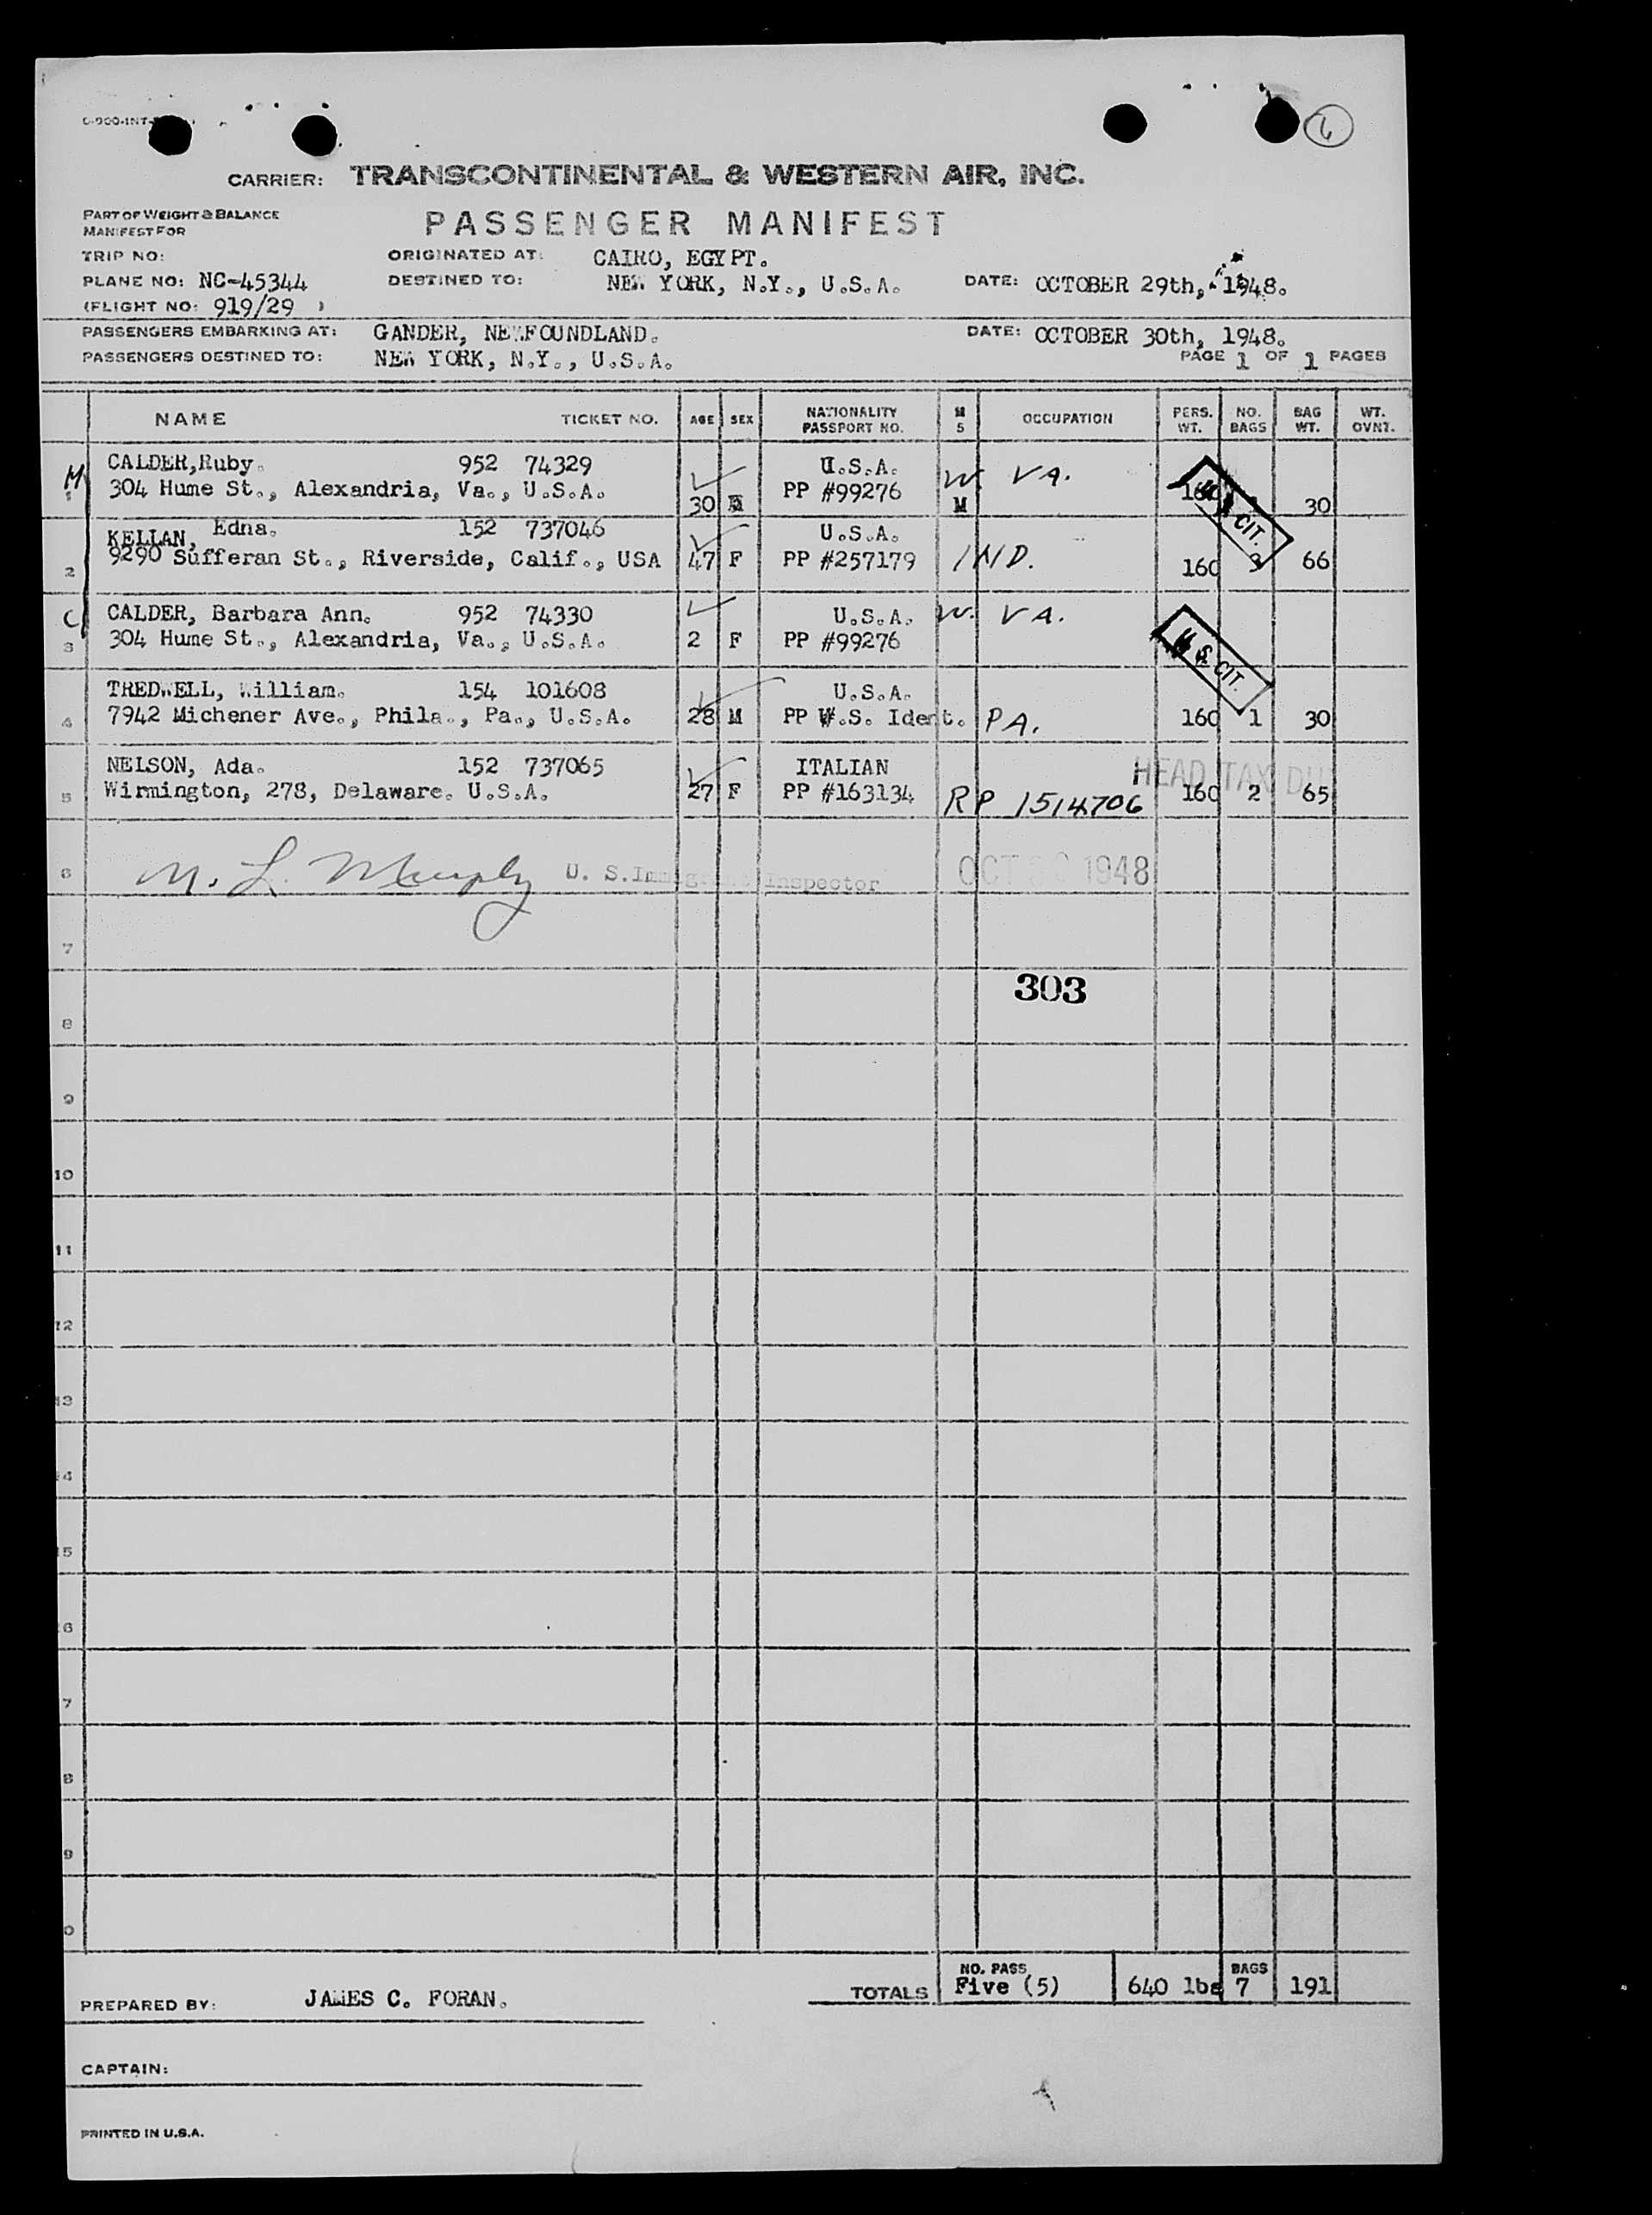 6
CARRIER: TRANSCONTINENTAL & WESTERN AIR, INC.
PART OF WEIGHT & BALANCE
MANIFEST FOR
PASSENGER MANIFEST
TRIP NO:
ORIGINATED AT: CAIRO, EGYPT.
PLANE NO: NC-45344
DESTINED TO: NEW YORK, N.Y., U.S.A.
DATE: OCTOBER 29th, 1948.
(FLIGHT NO: 919/29 )
PASSENGERS EMBARKING AT: GANDER, NEWFOUNDLAND.
DATE: OCTOBER 30th, 1948.
PASSENGERS DESTINED TO: NEW YORK, N.Y., U.S.A.
PAGE 1 OF 1 PAGES
NAME TICKET NO. AGE SEX NATIONALITY PASSPORT NO. M S OCCUPATION PERS. WT. NO. BAGS BAG WT. WT. OVNT.
M CALDER,Ruby. 952 74329 U.S.A. W. VA.
304 Hume St., Alexandria, Va., U.S.A. 30 PP #99276 M 160 30
U.S. CIT.
KELLAN, Edna. 152 737046 U.S.A.
2 9290 Sufferan St., Riverside, Calif., USA 47 F PP #257179 IND. 160 3 66
C CALDER, Barbara Ann. 952 74330 U.S.A. W. VA.
3 304 Hume St., Alexandria, Va., U.S.A. 2 F PP #99276
U.S. CIT.
TREDWELL, William. 154 101608 U.S.A.
4 7942 Michener Ave., Phila., Pa., U.S.A. 28 M PP W.S. Ident. PA. 160 1 30
NELSON, Ada. 152 737065 ITALIAN HEAD TAX DU
5 Wirmington, 278, Delaware. U.S.A. 27 F PP #163134 RP 1514706 160 2 65
6 M. L. Murphy U. S. Immigrant Inspector OCT 30 1948
7
303
8
9
10
11
12
13
14
15
16
7
8
9
0
TOTALS NO. PASS Five (5) 640 lbs BAGS 7 191
PREPARED BY: JAMES C. FORAN.
CAPTAIN:
PRINTED IN U.S.A.